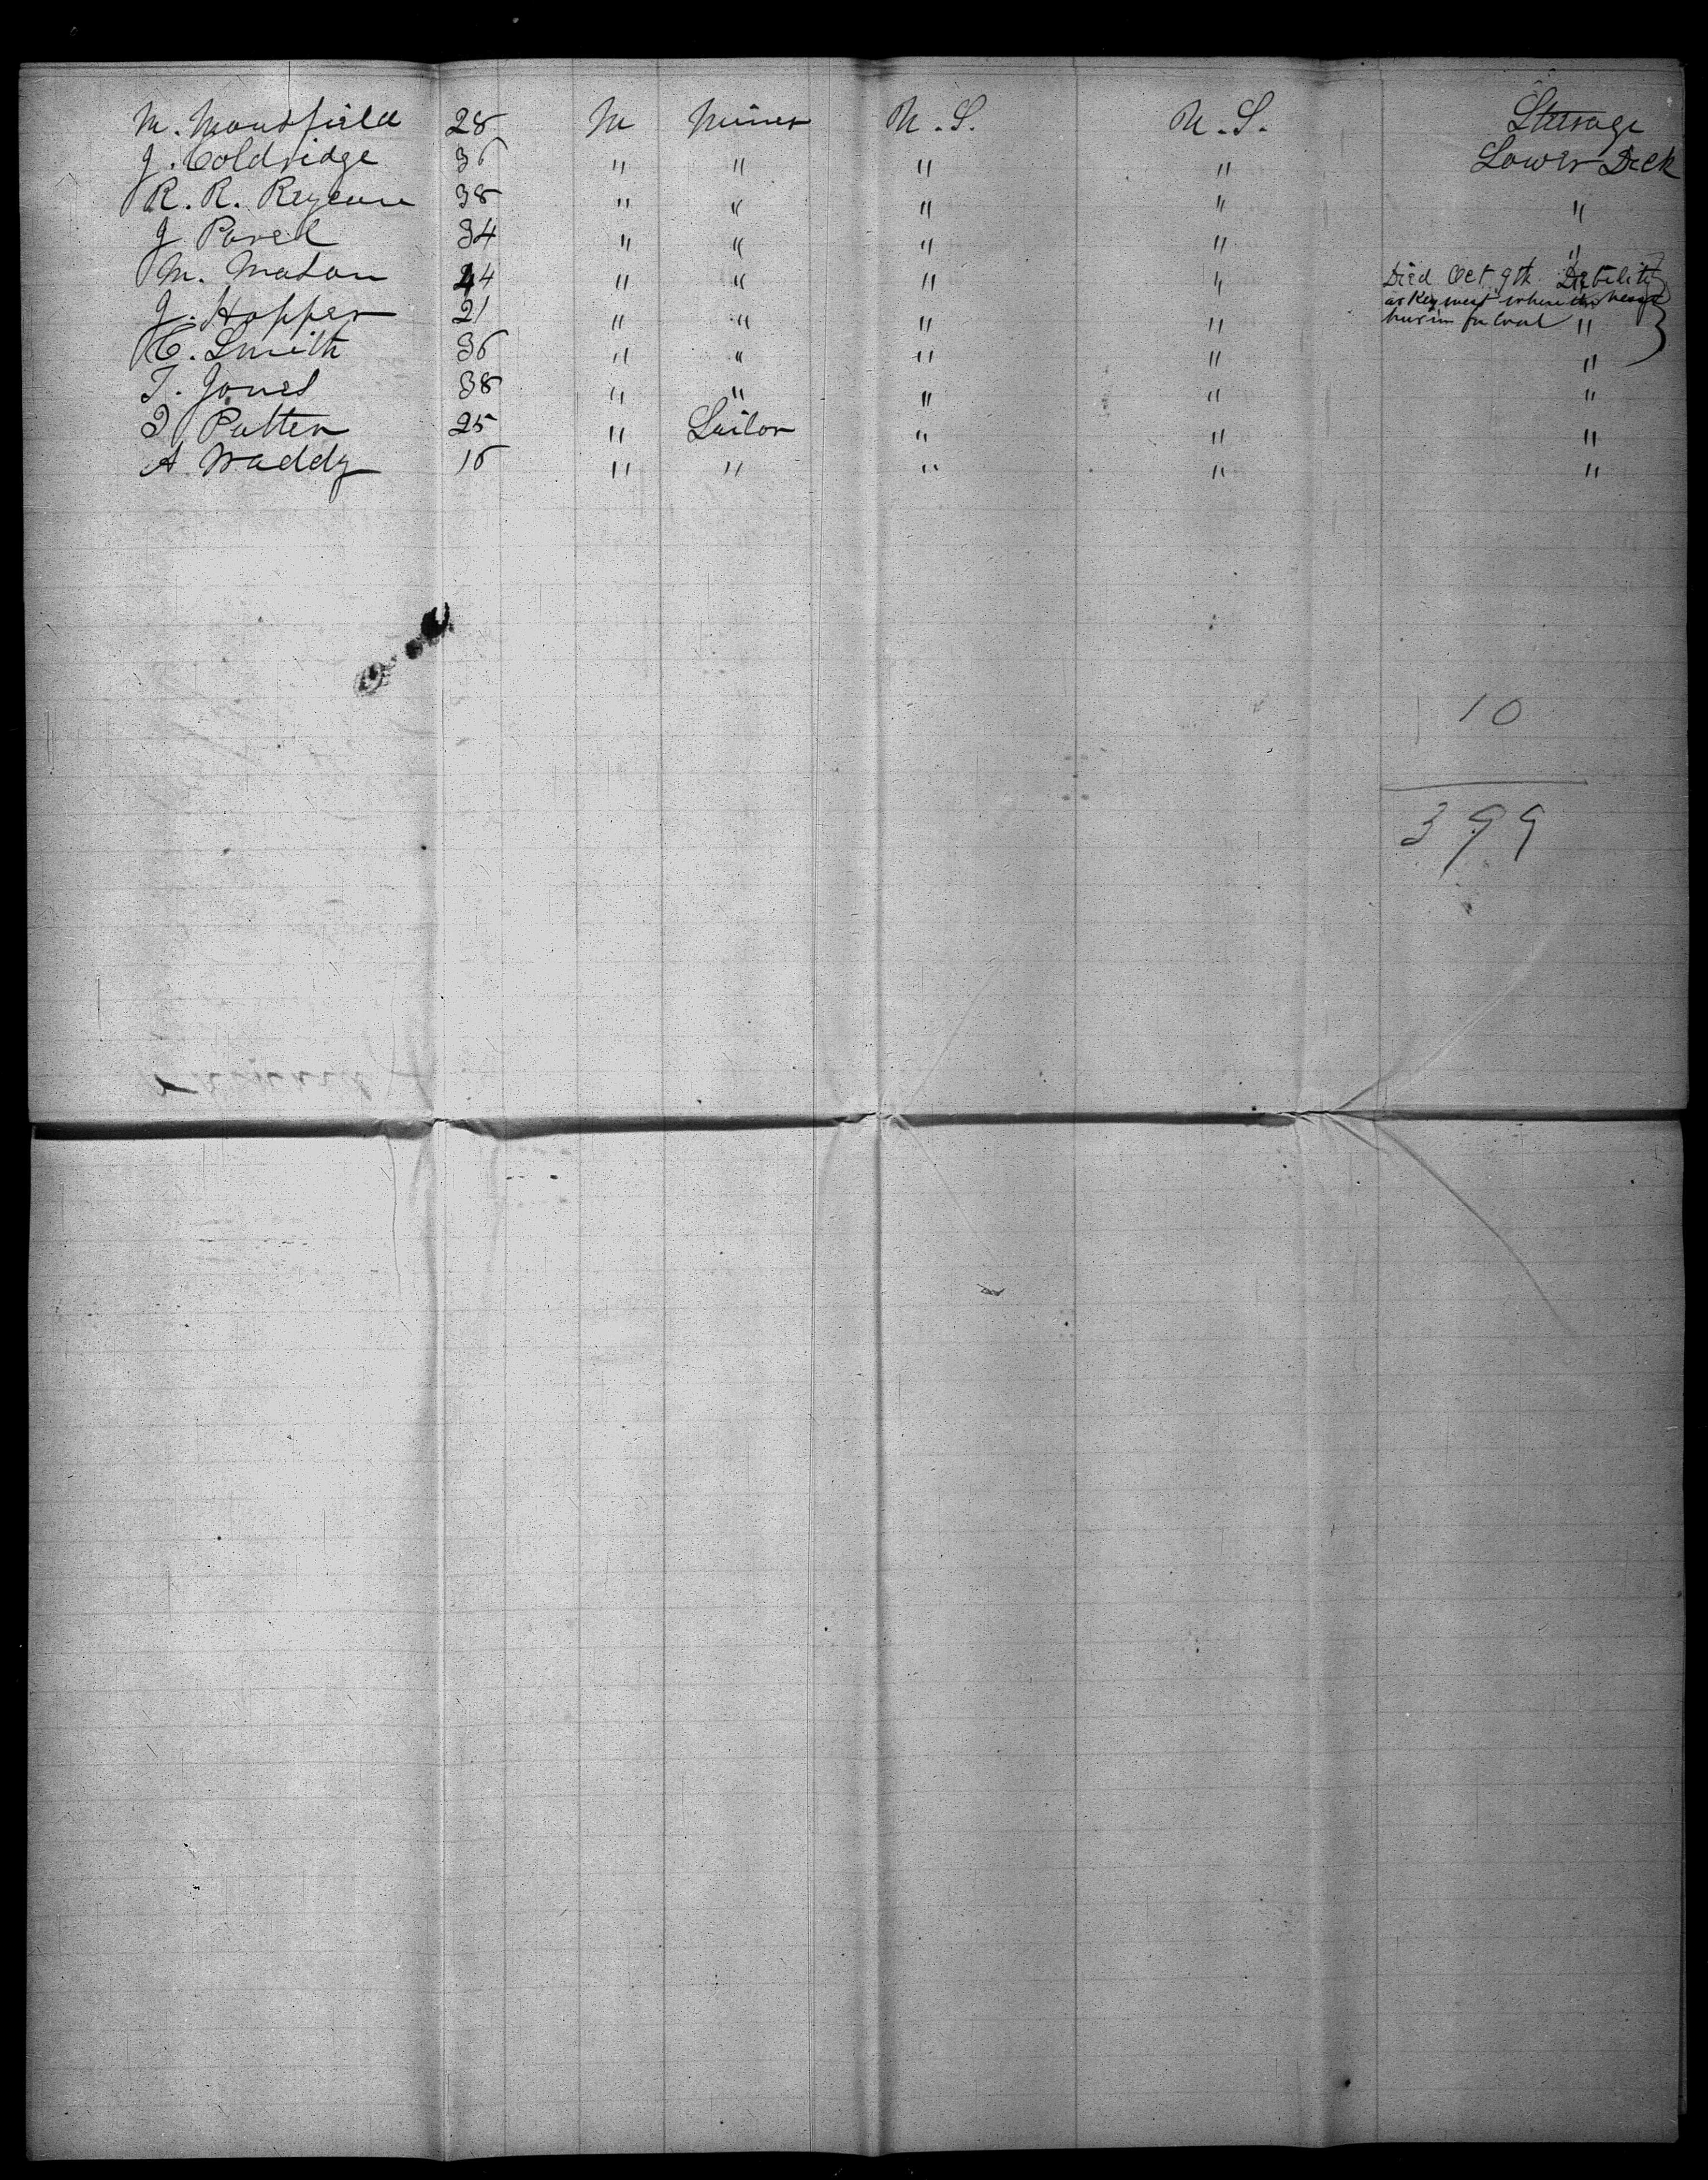 M. Mansfield 28 M Miner U.S. U.S. Steerage
J. Coldridge 36 " " " " Lower Deck
R. R. 38 " " " " "
J 34 " " " " "
M. 24 " " " " Died Oct 9th Debility "
at Key west where
J. Hopper 21 " " " " in for Coal "
C. Smith 36 " " " " "
T. Jones 38 " " " " "
Patten 25 " Sailor " " "
A. Waddy 16 " " " " "
10
399